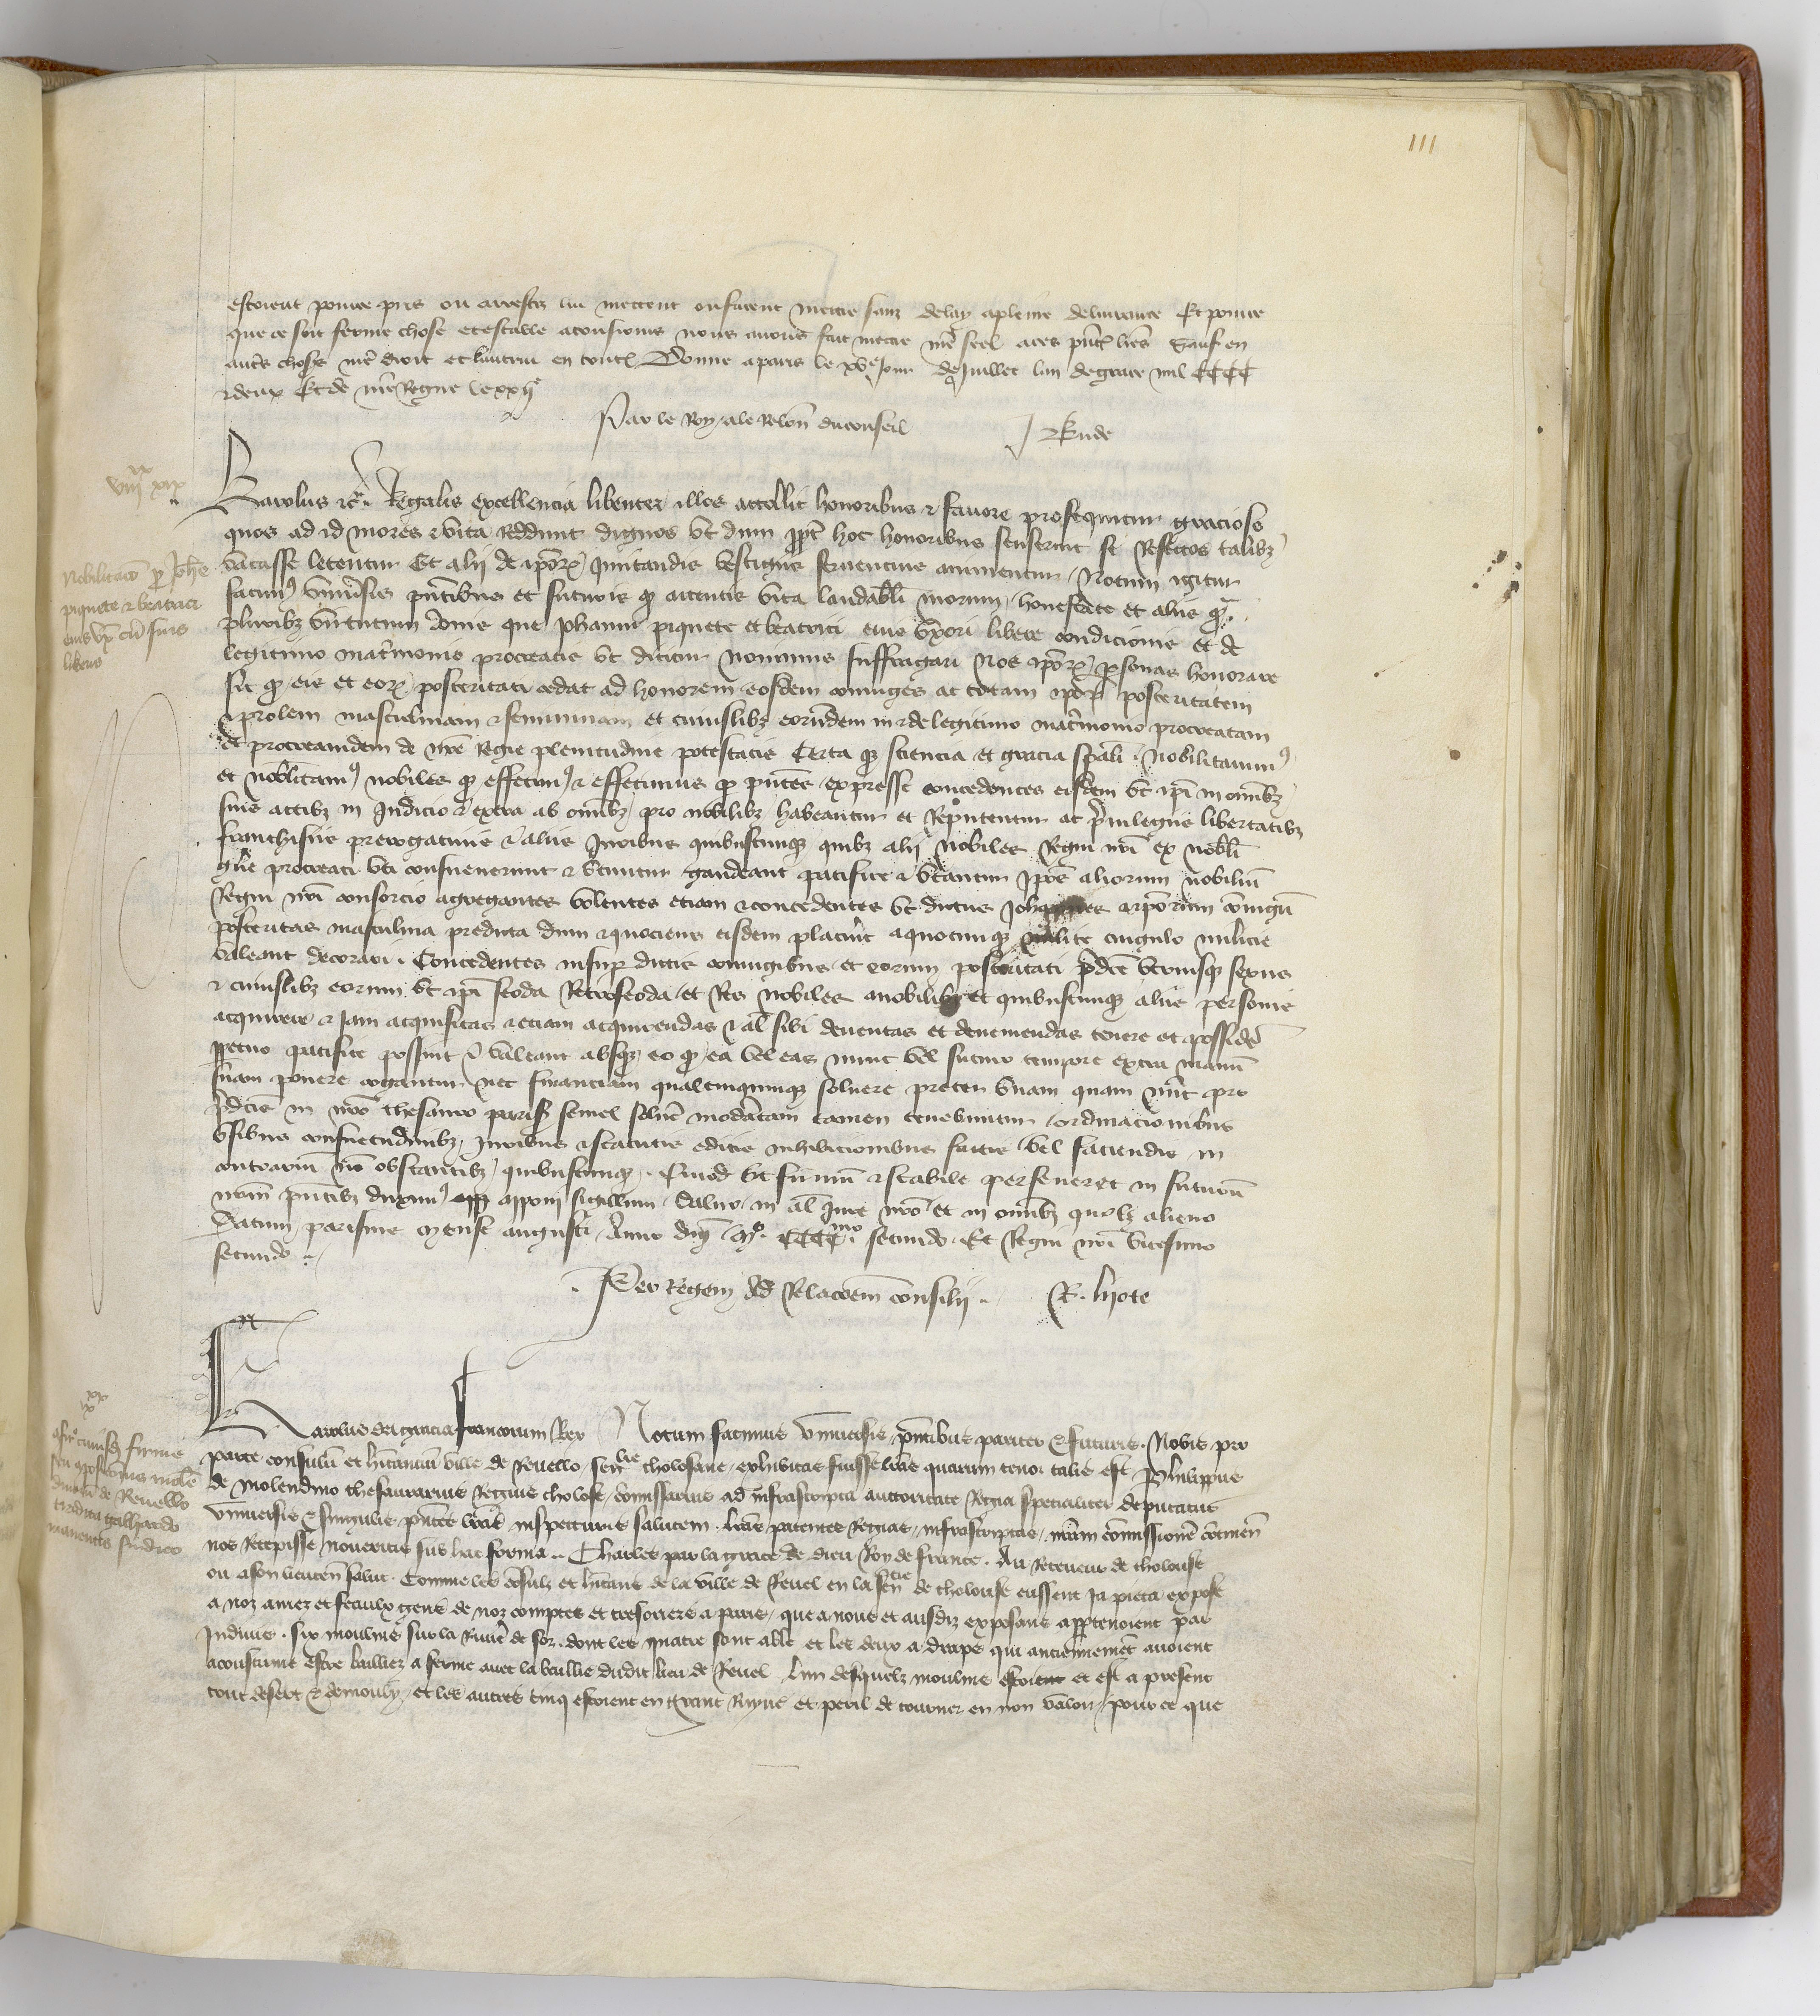 111
estoient pour ce pris ou arrestez lui mettent ou facent mettre sanz delay a pleine delivrance Et pour ce
que ce soit ferme chose et estable a tousiours nous avons fait mettre nre seel a ces pntes lres Sauf en
autres choses nre droit et lautrui en toutes Donne a paris le xve jour de Juillet lan de grace mil CCCC
& deux Et de nre Regne le xxije
Par le Roy a la Relon du conseil
viij xx xix
Karolus &c. Regalis excellencia libenter illos attollit honoribus & favore prosequitur gracioso
quos ad id mores & vita Reddunt dignos ut dum ppt hoc honoribus senserint se Refectos talibz
vacasse letentur Et alij de ipor imitandis vestigiis ferventius animentur Notum igitur
Nobilitacio p Johe
piquete & beatrici
eius ux cu suis
liberis
facimus universis pntibus et futuris q attentis vita laudabili morum honestate et aliis q
pluribz virtutum donis que Johanni piquete et beatrici eius uxori libere condicionis et de
legitimo matrimonio procreatis ut dicitur novimus suffragari Nos ipor personas honorare
sic q eis et eor posteritati cedat ad honorem eosdem coniuges ac totam ipor posteritatem
& prolem masculinam & femininam et cuiuslibz eorumdem in & de legitimo matrimonio procreatam
et procreandam de nre Regie plenitudine potestatis Certa q sciencia et gracia spali Nobilitavimus
et nobilitamus nobiles q effecimus & efficimus p pntes expresse concedentes eisdem ut ipi in omibz
suis actibz in Judicio & extra ab omibz pro nobilibz habeantur et Reputentur ac privilegiis libertatibz
franchisiis prerogativis & aliis Juribus quibuscunqz quibz alij nobiles Regni nri ex nobili
genere procreati uti consueverunt & utuntur gaudeant pacifice & utantur Ipos aliorum nobiliu
Regni nri consorcio aggregantes volentes etiam & concedentes ut dictus Johannes & ipsorum coniugu
posteritas masculina predicta dum & quociens eisdem placuerit a quocunqz milite cingulo milicie
valeant decorari. Concedentes insup dictis coniugibus et eorum posteritati pdce utriusqz sexus
& cuiuslibz eorum ut ipi feoda Retrofeoda et Res nobiles a nobilibz et quibuscunqz aliis personis
acquirere & Jam acquisitas & etiam acquirendas & al sibi deventas et deveniendas tenere et possidere
ppetuo pacifice possint & valeant absqz eo q ea vel eas nunc vel futuro tempore extra manu
suam ponere cogantur nec financiam qualemcunqz solvere preter unam quam nunc pro
pdcis in nro thesauro parisius semel solvere moderatam tamen tenebuntur ordinacionibus
usibus consuetudinibz Juribus & statutis editis inhibicionibus factis vel faciendis in
contrarium no obstantibz quibuscunqz. Quod ut firmu & stabile perseveret in futuru
nrm pntibz duximus app apponi sigillum Salvo in al Jure nro et in omibz quolz alieno
Datum parisius mense augusti Anno dni Mo. CCCCmo secundo. Et Regni nri vicesimo
secundo
Per Regem Ad Relacoem consilij. R. lyote
Karolus dei gracia francorum Rex Notum facimus universis pntibus pariter & futuris. Nobis pro
parte consulu et hitanciu ville de Revello sen lie tholosane exhibitas fuisse lras quarum tenor talis est Philippus
de Molendino thesaurarius Regius tholose comissarius ad infrascripta auctoritate Regia specialiter deputatus
universis & singulis pntes lras inspecturis salutem. lras patentes Regias infrascriptas nram comissione continen
nos Recepisse noveritis sub hac forma. Charles par la grace de dieu Roy de france. Au Receveur de tholouse
ou a son lieuten salut. Comme les cosulz et hitans de la ville de Revel en la sen cie de tholouse eussent Ja pieca expose
a noz amez et feaulx gens de noz comptes et tresoriers a paris, que a nous et ausdiz exposans appartenoient par
Indivis. six moulins sur la Riviere de Sor. dont les quatre sont a ble et les deux a draps qui anciennement avoient
acoustume estre bailliez a ferme avec la baillie dudit lieu de Revel. lun desquelz moulins estoient et est a present
tout desert & demouly, et les autres cinq estoient en grant Ruyne et peril de tourner en non valour, pour ce que